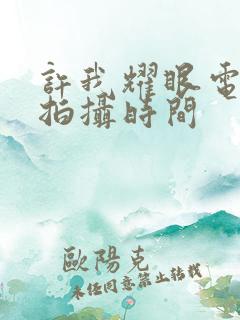 許我耀眼電
拍攝時間
歐陽克
未經同意禁止轉載